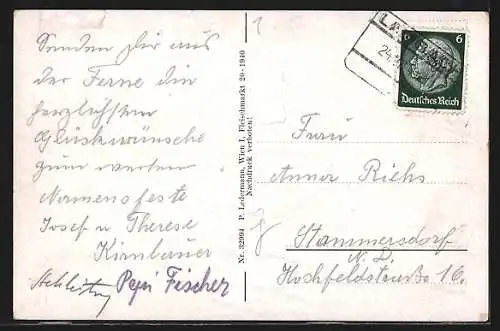 Senden Dir aus
der Ferne die
herzlichsten
Glückwünsche
zum werten
Namensfeste
Josef u. Therese
Kirnbauer
Pepi Fischer
Nr. 32994 P. Ledermann, Wien I, Fleischmarkt 20 - 1940
Nachdruck verboten!
6 6
Deutsches Reich
Frau
Anna Riehs
Stammersdorf
N. D.
Hochfeldstraße 16.